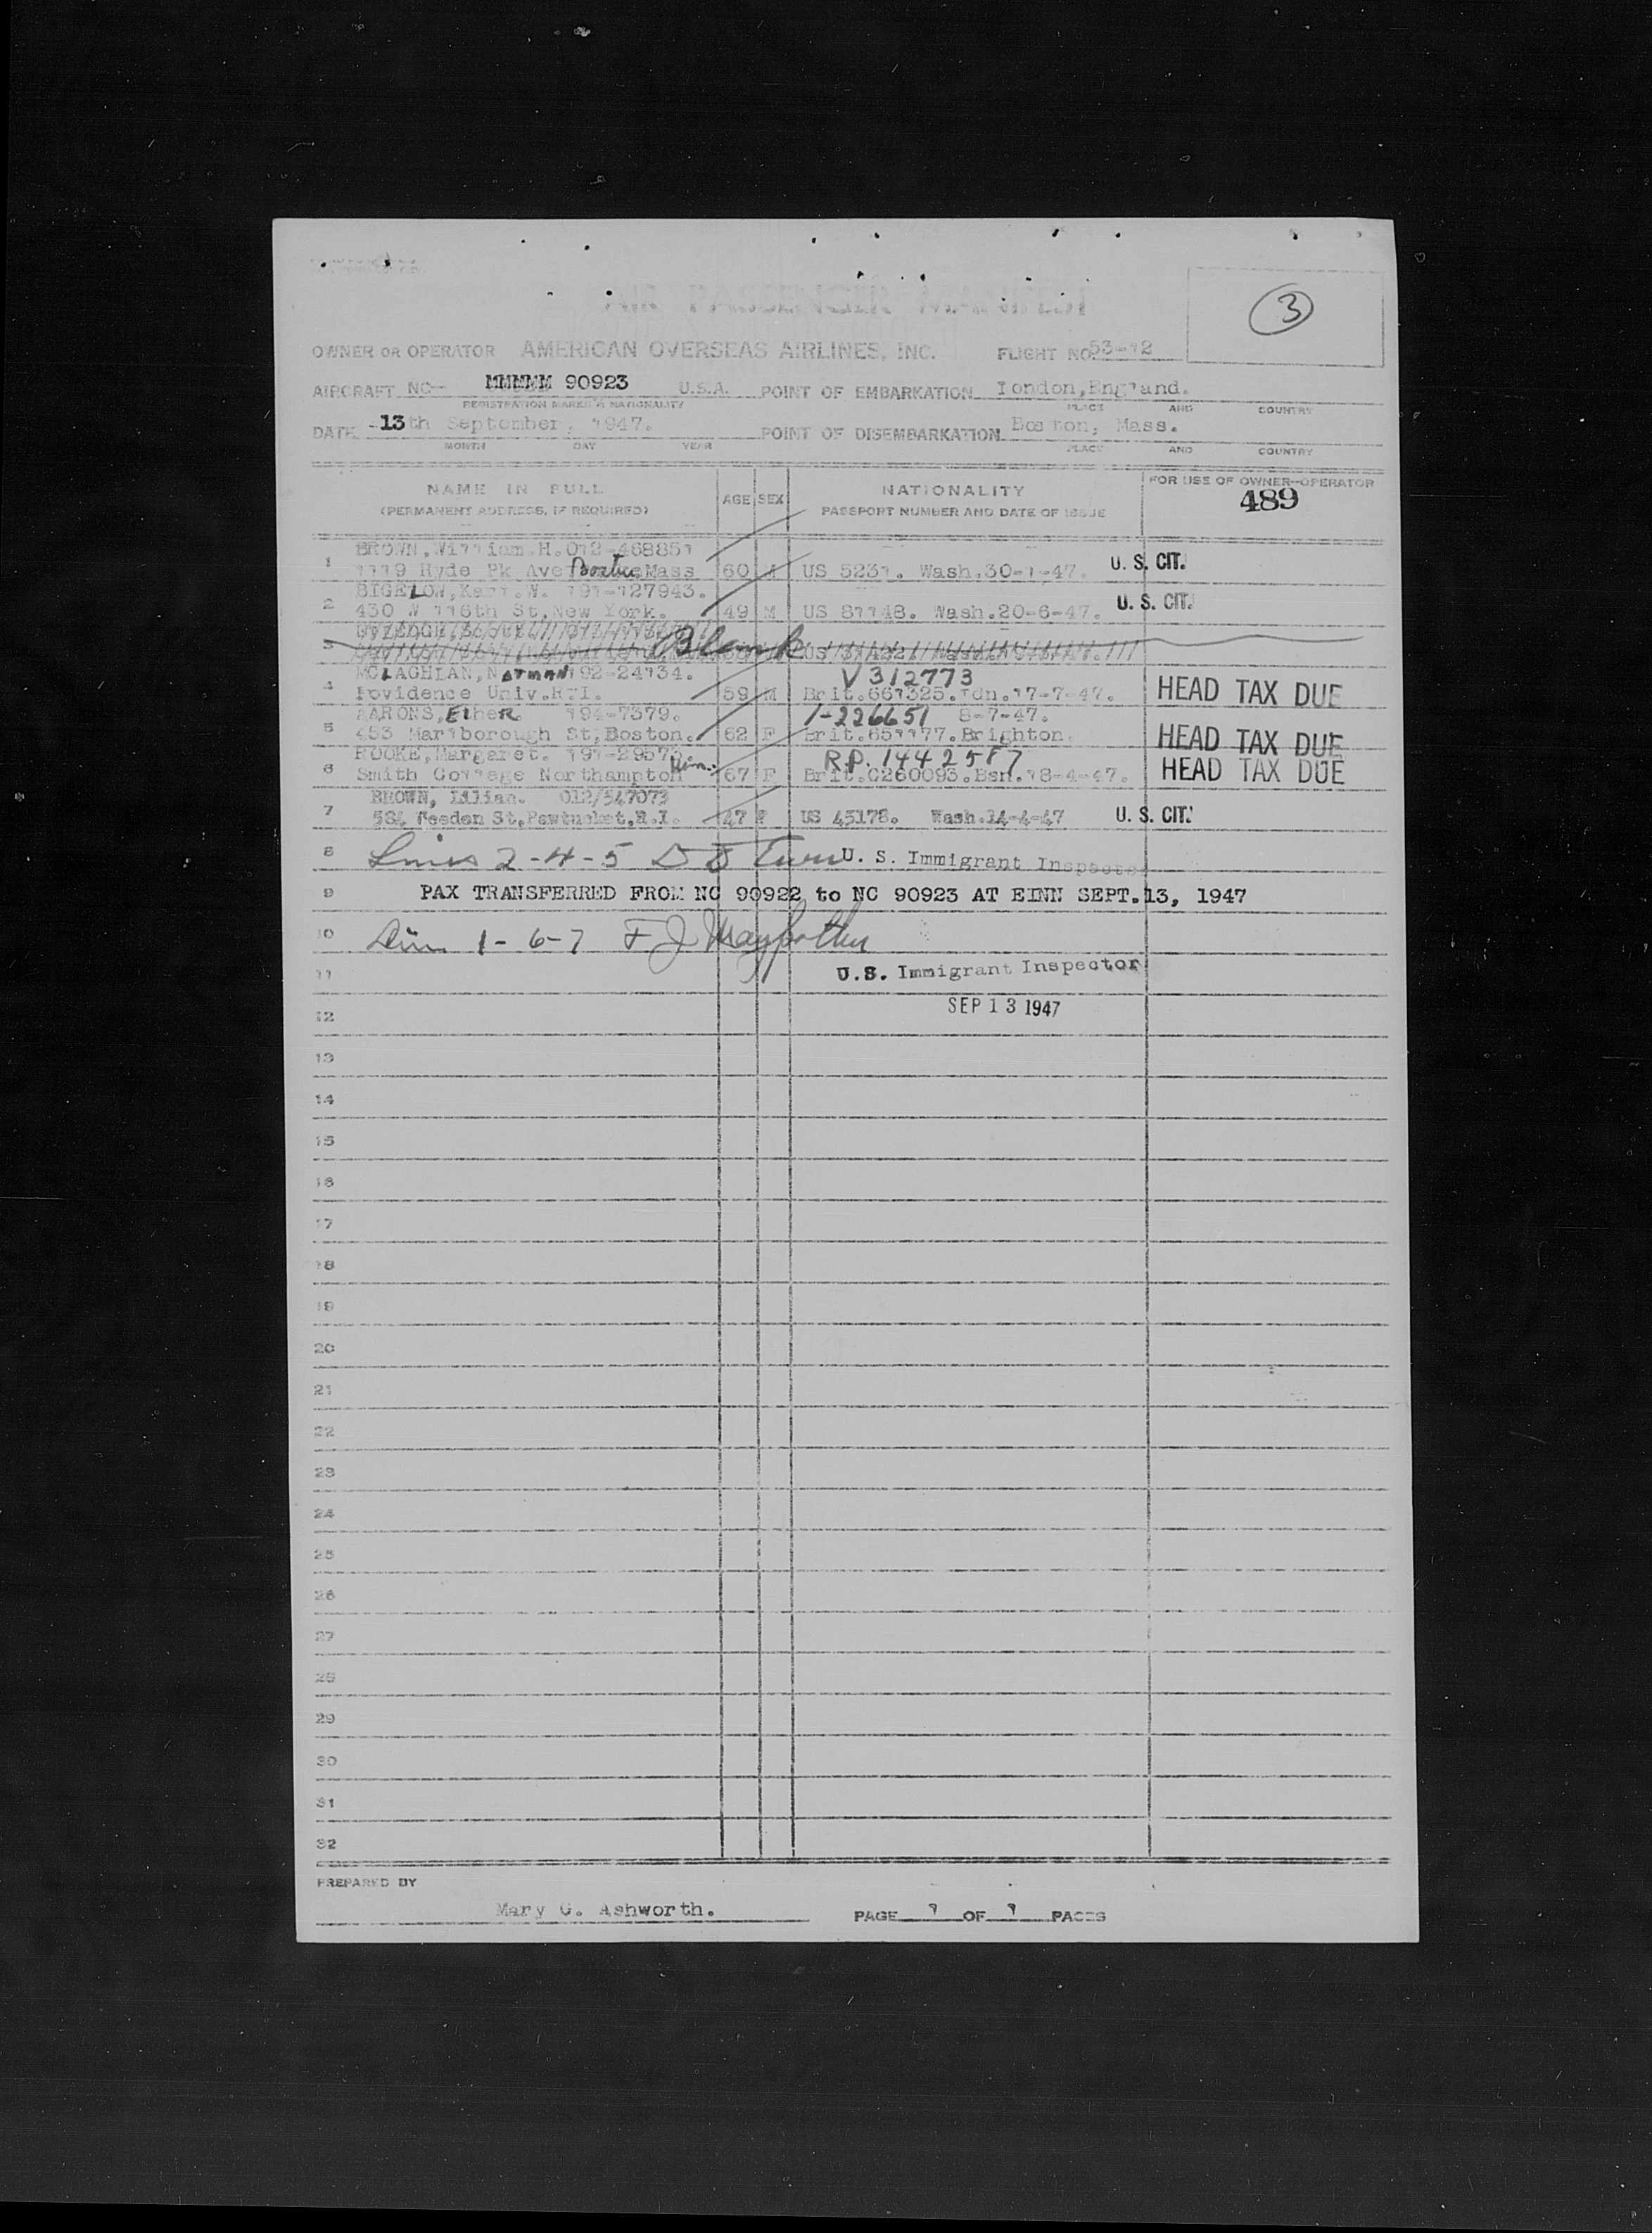 3
OWNER OR OPERATOR AMERICAN OVERSEAS AIRLINES, INC. FLIGHT NO 53-12
AIRCRAFT NC- MMMMM 90923 U.S.A. POINT OF EMBARKATION London, England.
REGISTRATION MARKS & NATIONALITY PLACE AND COUNTRY
DATE 13th September, 1947. POINT OF DISEMBARKATION Boston, Mass.
MONTH DAY YEAR PLACE AND COUNTRY
NAME IN FULL AGE SEX NATIONALITY FOR USE OF OWNER-OPERATOR
(PERMANENT ADDRESS, IF REQUIRED) PASSPORT NUMBER AND DATE OF ISSUE 489
BROWN, William.H. 012-468851
1 1119 Hyde Pk Ave Boston Mass 60 M US 5231. Wash.30-1-47. U. S. CIT.
BIGELOW, Karl.W. 191-127943.
2 430 W 116th St, New York. 49 M US 81148. Wash.20-6-47. U. S. CIT.
3 Blank
MCLAGHLAN, N 192-24134. V 312773
4 Rovidence Univ.R.I. 59 M Brit.661325.Ldn.17-7-47. HEAD TAX DUE
AARONS, 194-7379. 1-226651 8-7-47.
5 453 Marlborough St, Boston. 62 F Brit.651177.Brighton. HEAD TAX DUE
ROOKE, Margaret. 191-29573 R.P. 1442587
6 Smith College Northampton 67 F Brit.C260093.Bsn.18-4-47. HEAD TAX DUE
BROWN, Lilian. 012/547073
7 584 Weeden St, Pawtucket, R.I. 47 F US 45178. Wash.14-4-47 U. S. CIT.
8 Lines 2-4-5 U. S. Immigrant Inspector
9 PAX TRANSFERRED FROM NC 90922 to NC 90923 AT EINN SEPT.13, 1947
10 1-6-7 F J
11 U.S. Immigrant Inspector
12 SEP 13 1947
13
14
15
16
17
18
19
20
21
22
23
24
25
26
27
28
29
30
31
32
PREPARED BY
Mary G. Ashworth. PAGE 1 OF 1 PAGES